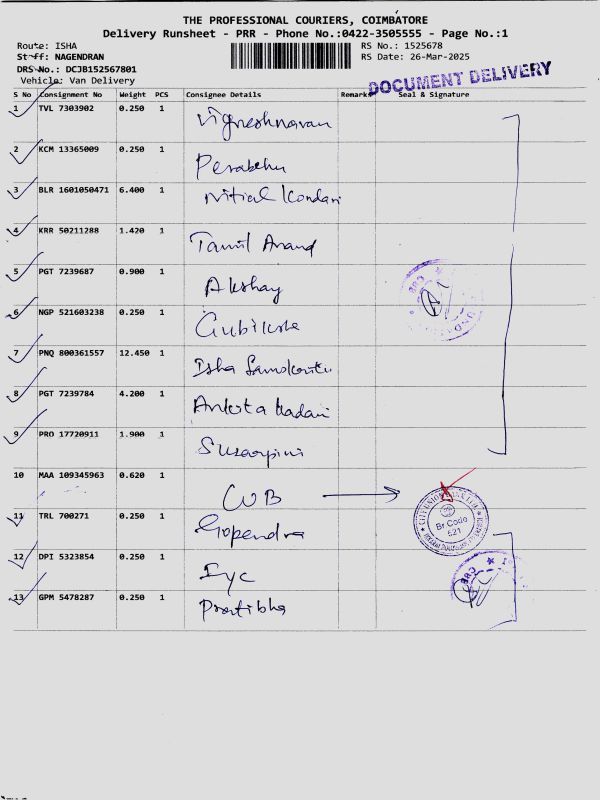 THE PROFESSIONAL COURIERS, COIMBATORE
Delivery Runsheet - PRR - Phone No.:0422-3505555 - Page No.:1
Route: ISHA RS No.: 1525678
Staff: NAGENDRAN RS Date: 26-Mar-2025
DRS No.: DCJB152567801
Vehicle: Van Delivery
DOCUMENT DELIVERY
S No Consignment No Weight PCS Consignee Details Remark Seal & Signature
1 TVL 7303902 0.250 1 Vigneshnavan
2 KCM 13365009 0.250 1
3 BLR 1601050471 6.400 1
4 KRR 50211288 1.420 1 Tamil Anand
5 PGT 7239687 0.900 1 Akshay
6 NGP 521603238 0.250 1
7 PNQ 800361557 12.450 1 Isha
8 PGT 7239784 4.200 1 Ankita
9 PRO 17720911 1.900 1
10 MAA 109345963 0.620 1 CUB
Br Code
621
11 TRL 700271 0.250 1 Gopendra
12 DPI 5323854 0.250 1 Iyc
13 GPM 5478287 0.250 1 Pratibha